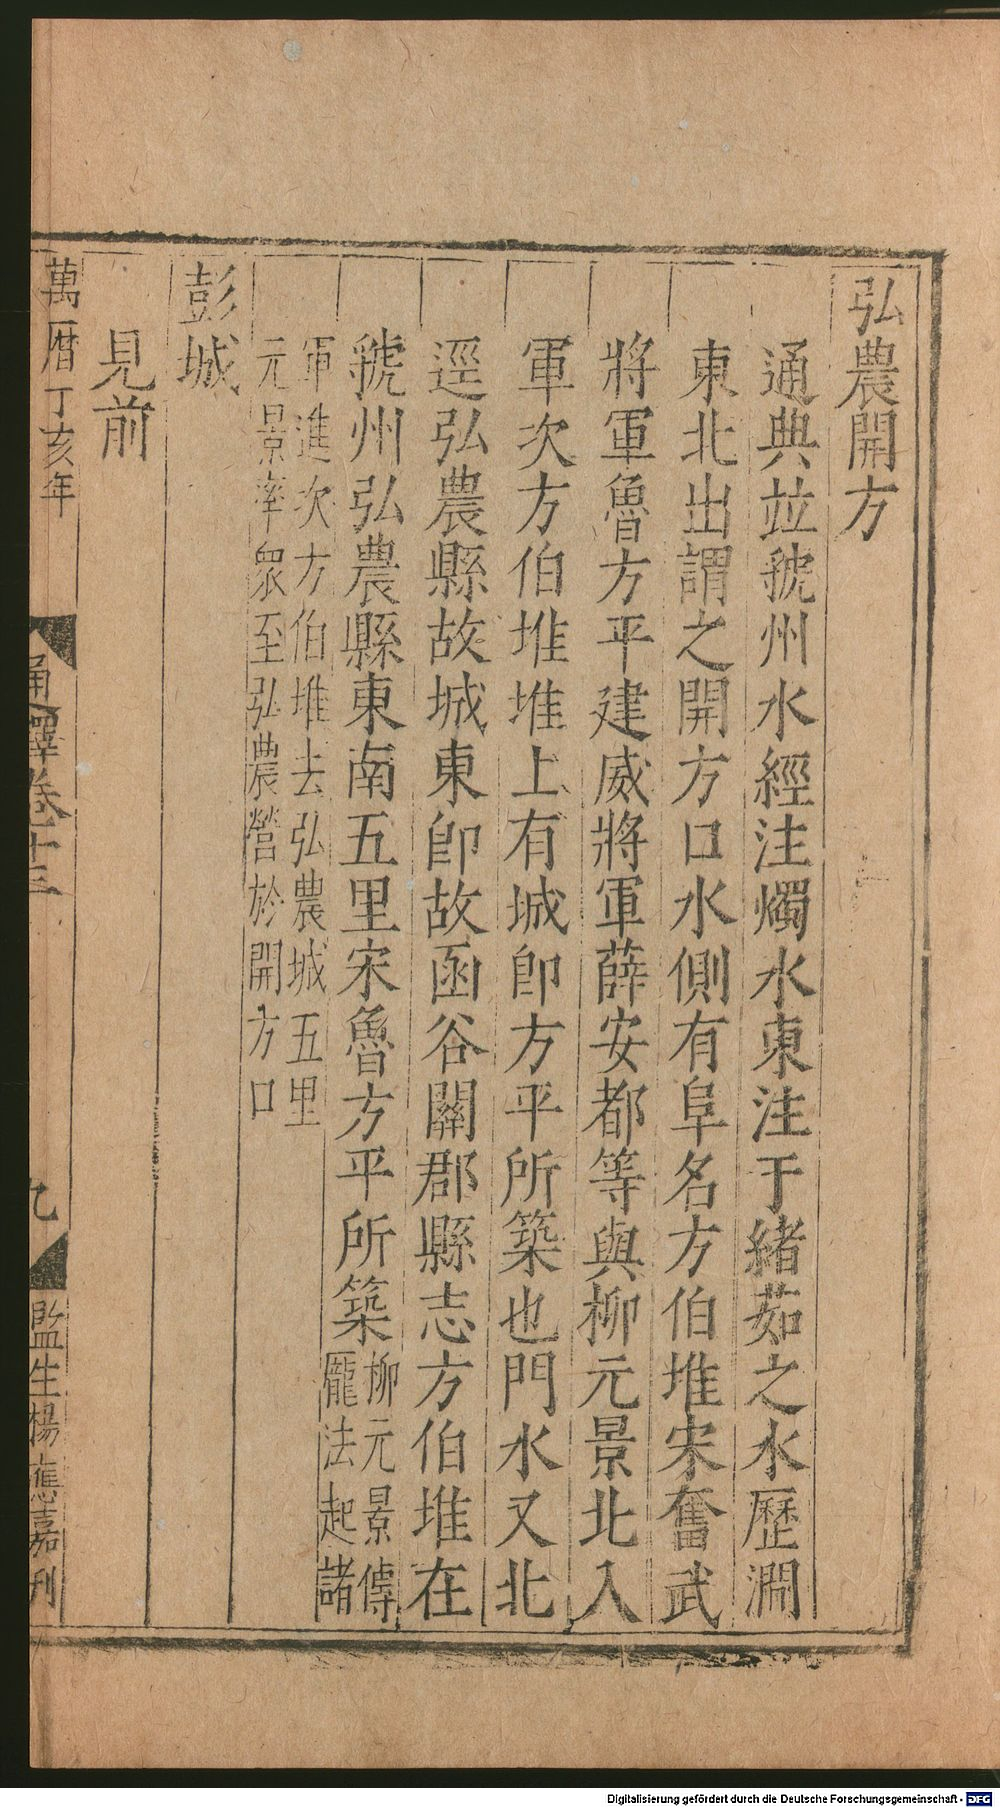 弘農開方
通典竝虢州水經注燭水東注于緒茹之水歷澗
東北出謂之開方口水側有阜名方伯堆宋奮武
將軍魯方平建威將軍薛安都等與柳元景北入
軍次方伯堆堆上有城卽方平所築也門水又北
逕弘農縣故城東卽故函谷關郡縣志方伯堆在
虢州弘農縣東南五里宋魯方平所築柳元景傳
龎法起諸
軍進次方伯堆去弘農城五里
元景率衆至弘農營於開方口
彭城
見前
萬曆丁亥年
通釋卷十三
九
監生楊應嘉刊
Digitalisierung gefördert durch die Deutsche Forschungsgemeinschaft - DFG